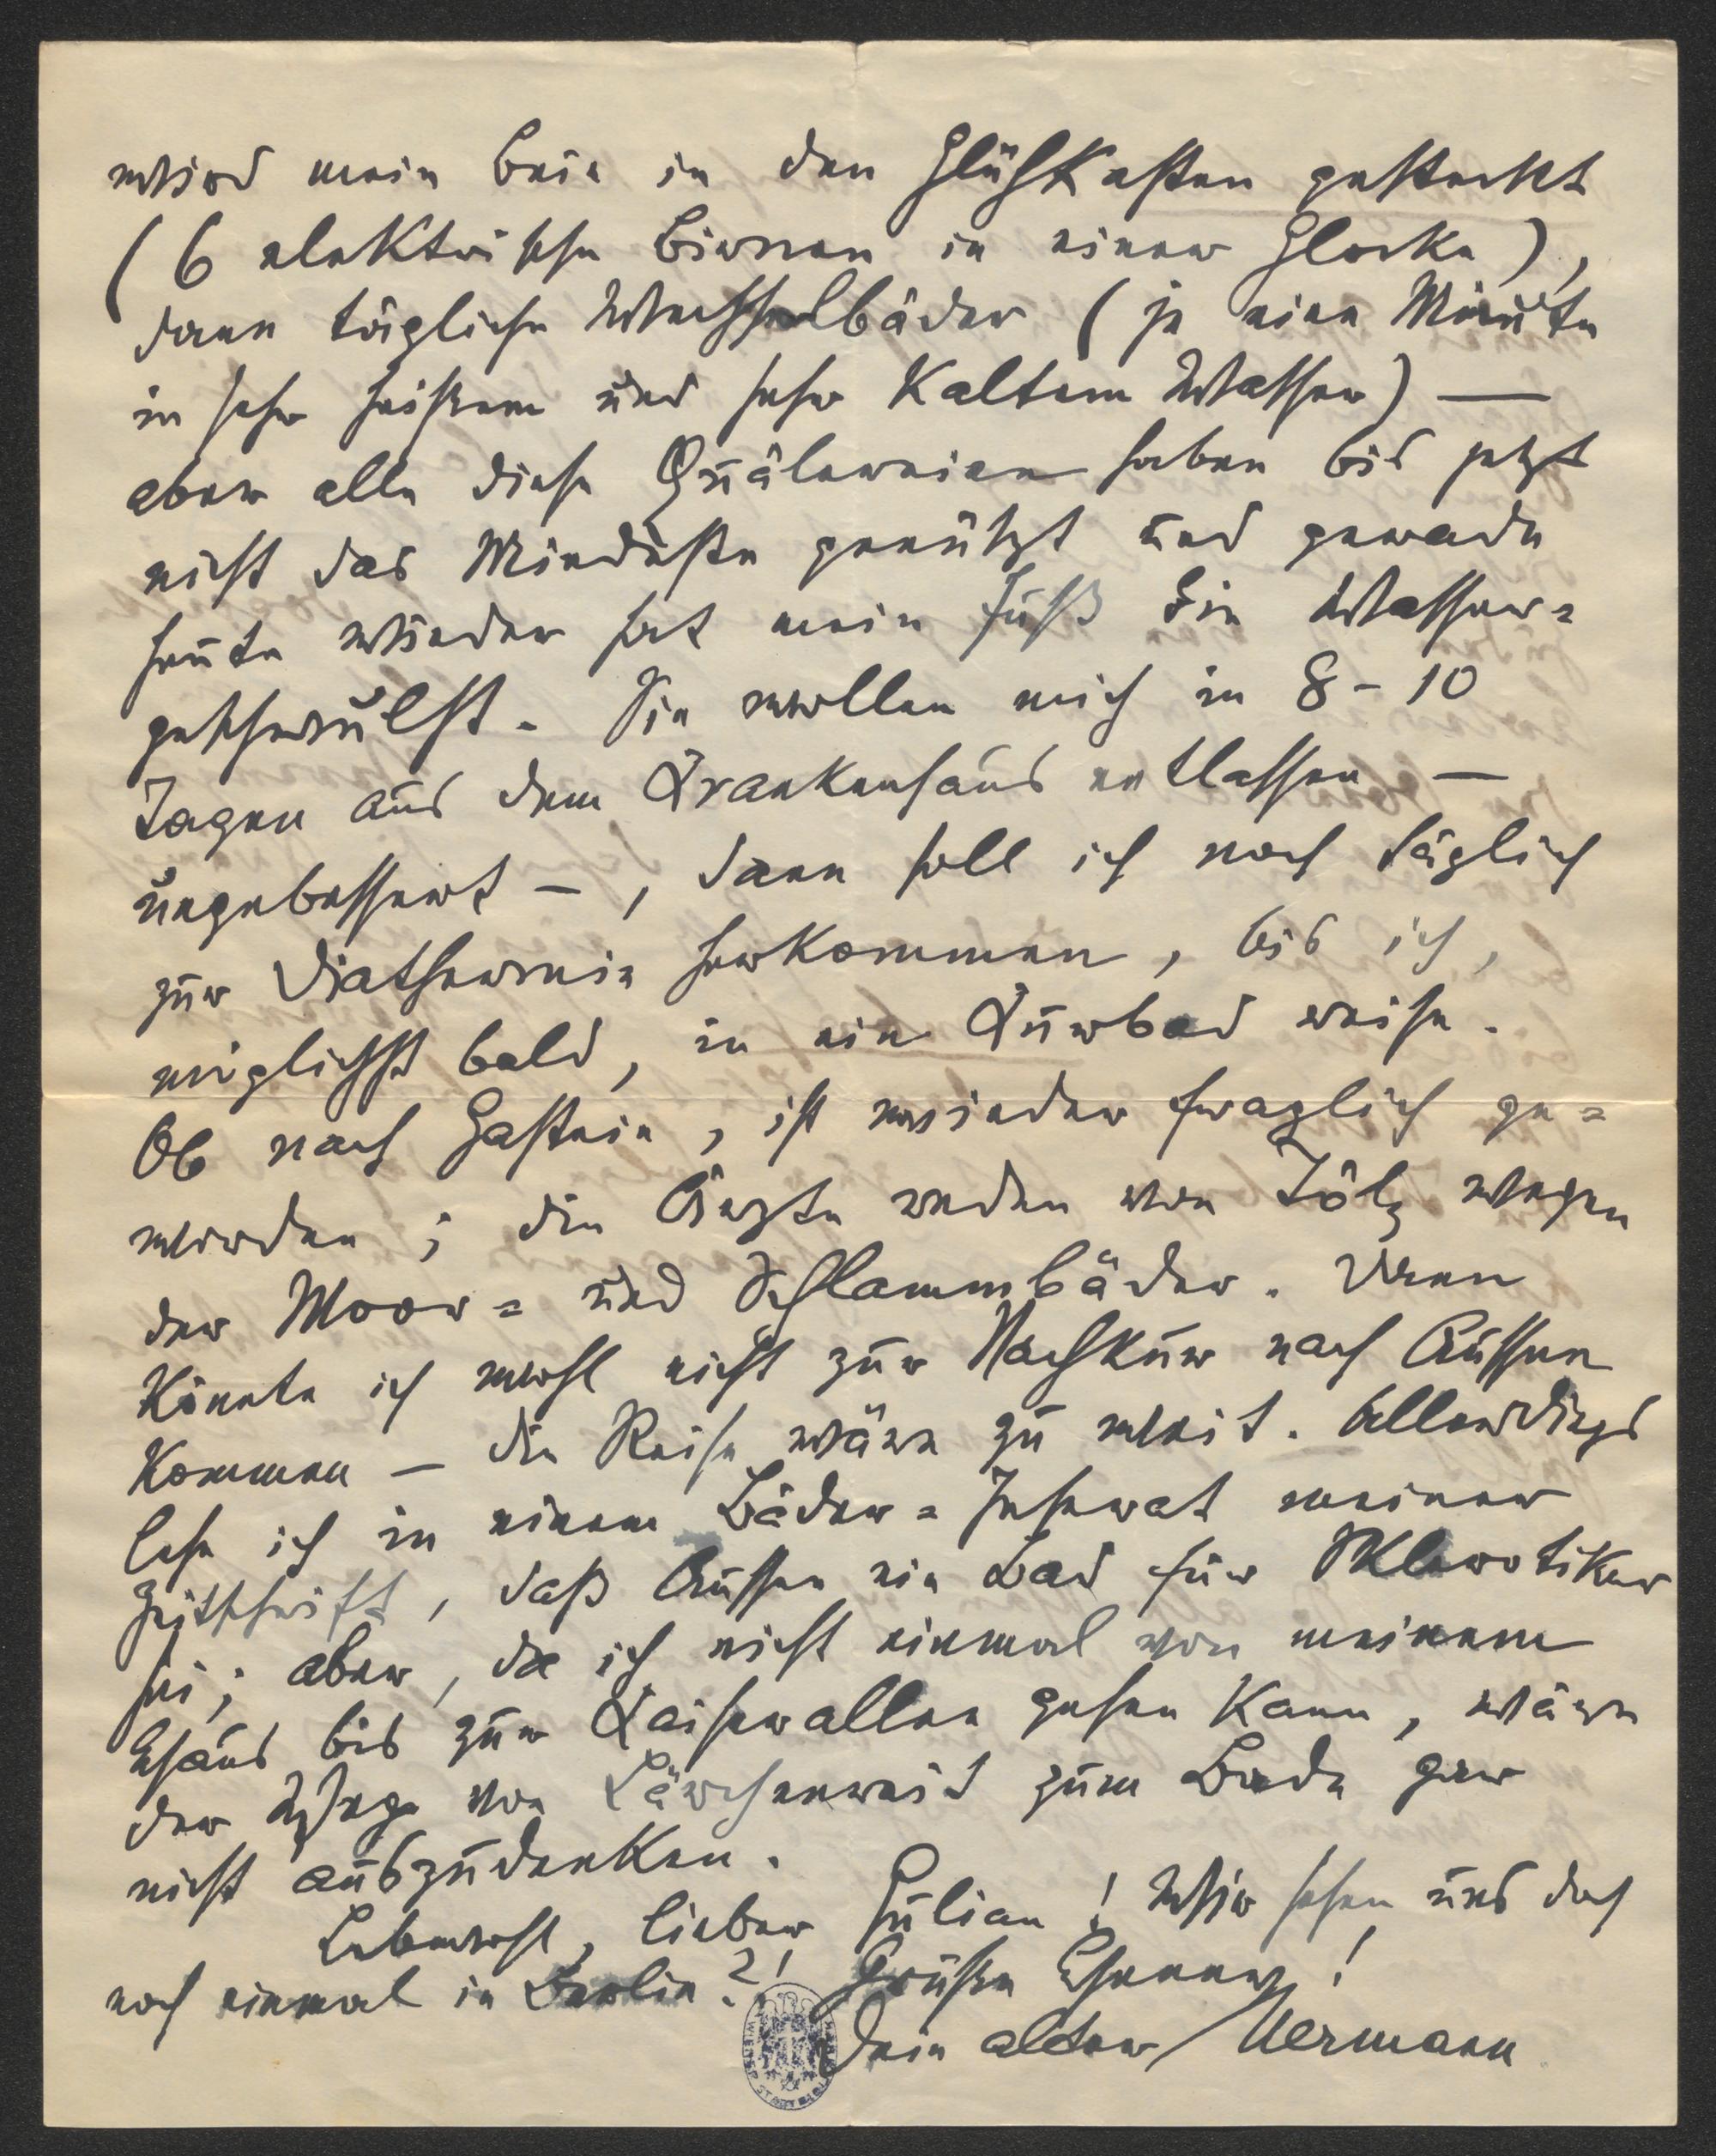 wird mein Bein in den Glühkasten gesteckt
(6 elektrische Birnen in einer Glocke),
dann tägliche Wechselbäder (je eine Minute
in sehr heißem und sehr kaltem Wasser) —
aber alle diese Quälereien haben bis jetzt
nicht das Mindeste genützt und gerade
heute wieder hat mein Fuß die Wasser=
geschwulst. Sie wollen mich in 8 – 10
Tagen aus dem Krankenhaus entlassen —
ungebessert –, dann soll ich noch täglich
zur Diathermie herkommen, bis ich,
möglichst bald, in ein Kurbad reise.
Ob nach Gastein, ist wieder fraglich ge=
worden; die Ärzte reden von Tölz wegen
der Moor= und Schlammbäder. Dann
könnte ich wohl nicht zur Nachkur nach Aussee
kommen – die Reise wäre zu weit. Allerdings
lese ich in einem Bäder=Inserat meiner
Zeitschrift, daß Aussee ein Bad für Sklerotiker
sei; aber, da ich nicht einmal von meinem
Haus bis zur Kaiserallee gehen kann, wäre
der Weg von Lärchenreit zum Bade gar
nicht auszudenken.
Lebewohl, lieber Julian! Wir sehen uns doch
noch einmal in Berlin?! Grüße Jenny!
Dein alter Hermann